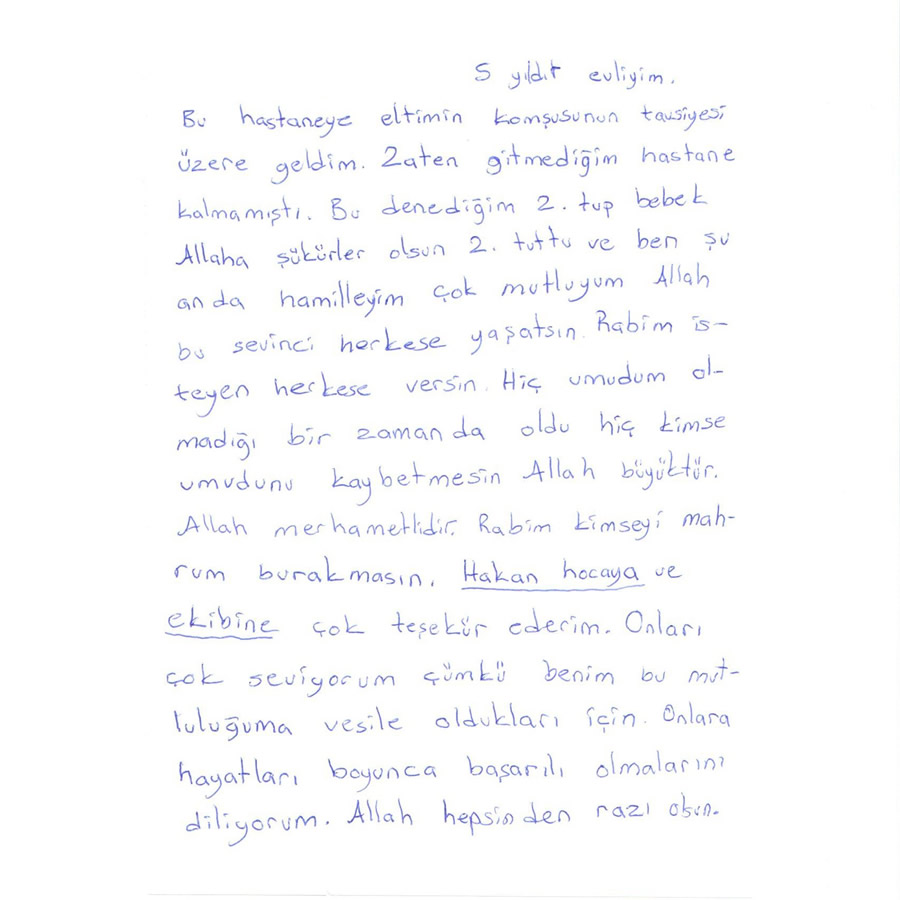 5 yıldır evliyim.
Bu hastaneye eltimin komşusunun tavsiyesi
üzere geldim. Zaten gitmediğim hastane
kalmamıştı. Bu denediğim 2. tup bebek
Allaha şükürler olsun 2. tuttu ve ben şu
an da hamilleyim çok mutluyum Allah
bu sevinci herkese yaşatsın. Rabim is-
teyen herkese versin. Hiç umudum ol-
madığı bir zaman da oldu hiç kimse
umudunu kaybetmesin Allah büyüktür.
Allah merhametlidir. Rabim kimseyi mah-
rum burakmasın. Hakan hocaya ve
ekibine çok teşekür ederim. Onları
çok seviyorum çümkü benim bu mut-
luluğuma vesile oldukları için. Onlara
hayatları boyunca başarılı olmalarını
diliyorum. Allah hepsinden razı olsun.